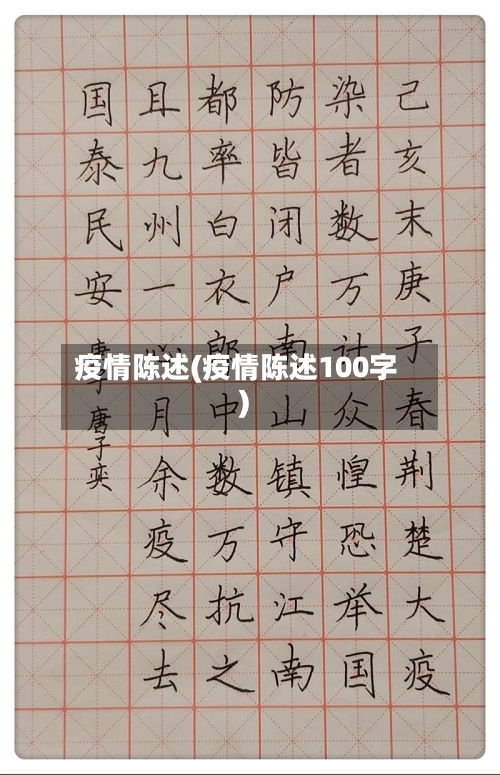 己亥末庚子春荆楚大疫
染者数万计众惶恐举国
防皆闭户南山镇守江南
都率白衣郎中数万抗之
且九州一月余疫尽去
国泰民安
唐子奕
疫情陈述(疫情陈述100字
)